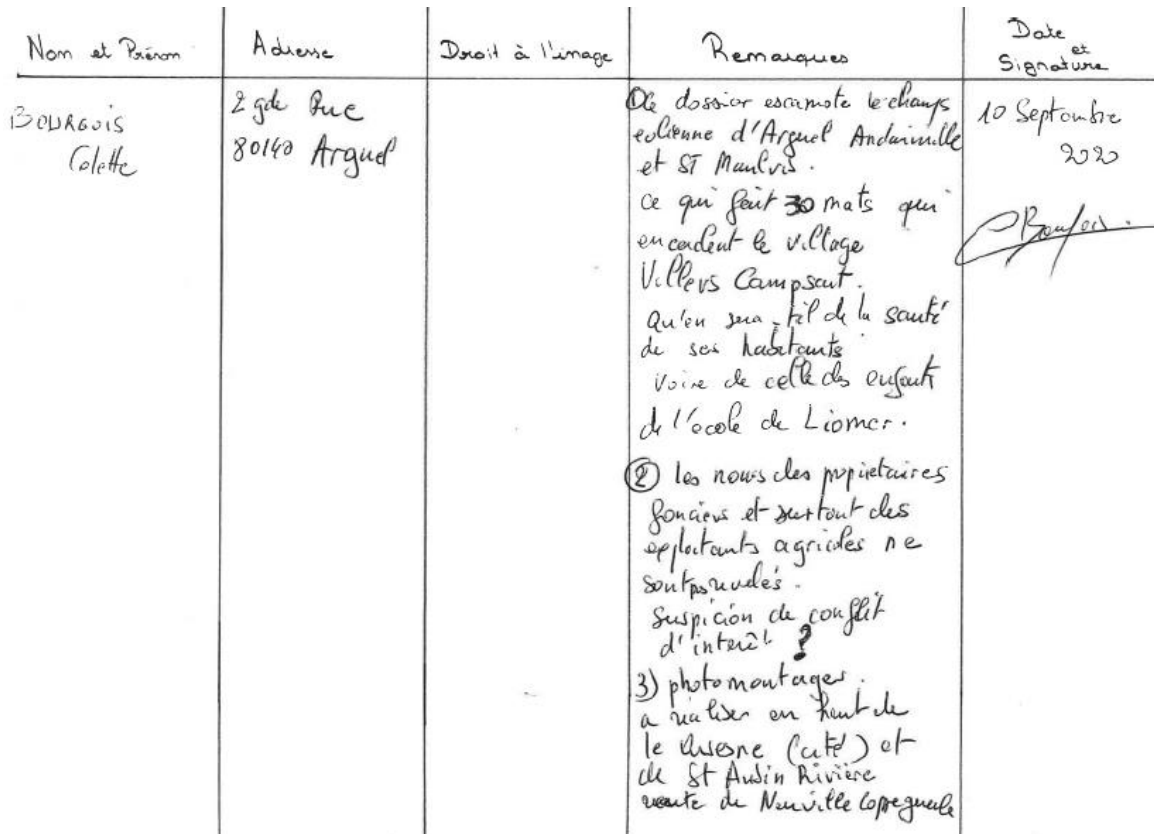 Nom et Prénom
Adresse
Droit à l'image
Remarques
Date
et
Signature
BOURGOIS
Colette
2 gde Rue
80140 Arguel
① le dossier escamote le champs
eolienne d'Arguel Andainville
et ST Maulvis.
ce qui fait 30 mats qui
encerclent le village
Villers Campsart.
Qu'en sera-t-il de la santé
de ses habitants
voire de celle des enfants
de l'école de Liomer.
② les noms des propriétaires
fonciers et surtout des
exploitants agricoles ne
sont pas révélés.
Suspicion de conflit
d'interêt ?
3) photomontages.
a realiser en haut de
le Quesne (cité) et
de St Aubin Rivière
route de Neuville Coppegueule
10 Septembre
2020